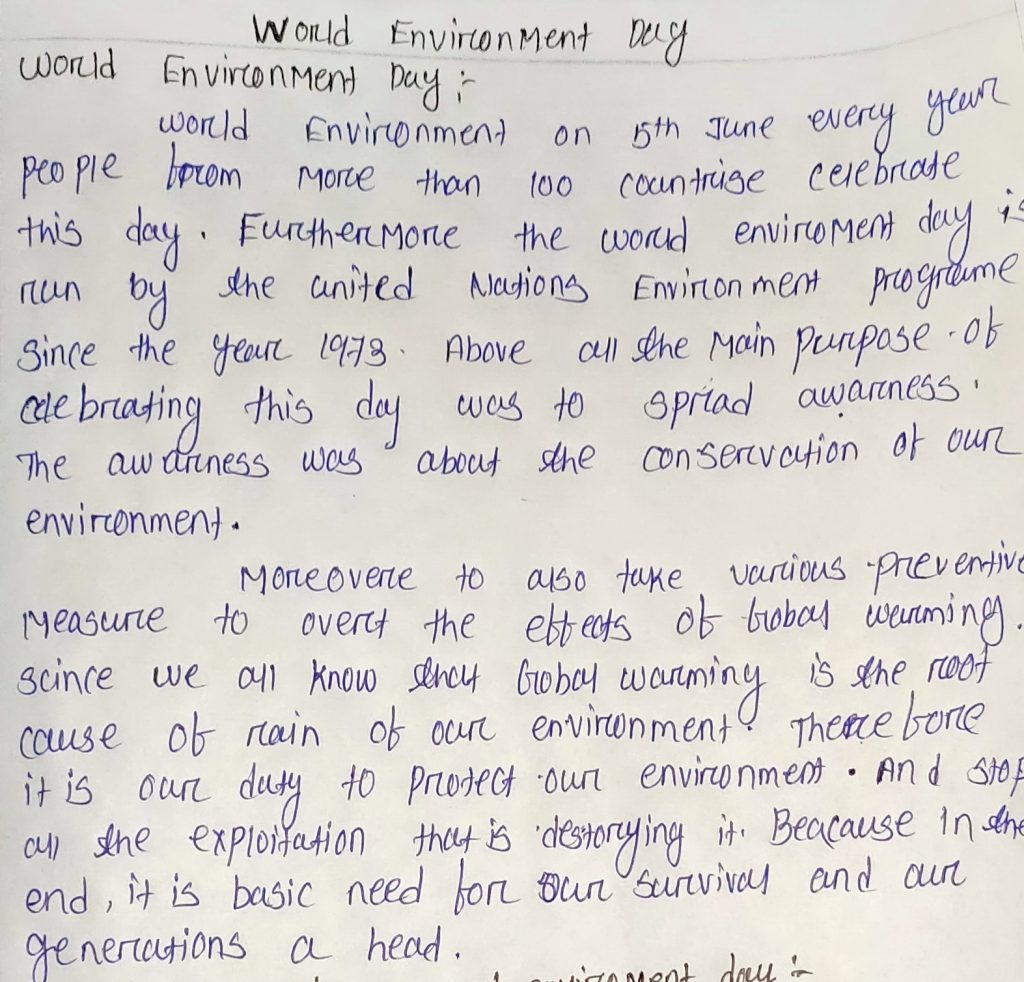 World Environment Day
World Environment Day :-
World Environment on 5th June every year
people from more than 100 countrise celebrate
this day. Furthermore the world enviroment day is
run by the united Nations Environment programe
since the year 1973. Above all the main purpose of
celebrating this day was to spriad awarness.
The awarness was about the conservation of our
environment.
Moreovere to also take various preventive
measure to overt the effects of Grobal warming.
scince we all know that Grobal warming is the root
cause of rain of our environment. Therefore
it is our duty to protect our environment. And stop
all the exploitation that is destorying it. Beacause in the
end, it is basic need for our survival and our
generations a head.
environment day :-